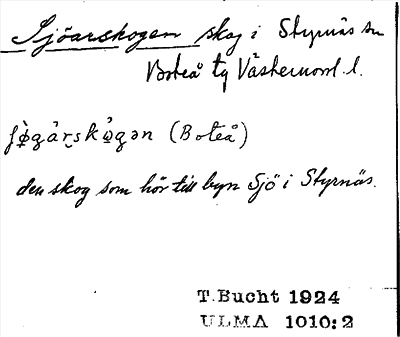 Sjöarskogen skog i Styrnäs sn
Boteå tg Västernorrl. l.
(Boteå)
den skog som hör till byn Sjö i Styrnäs.
T.Bucht 1924
ULMA 1010:2